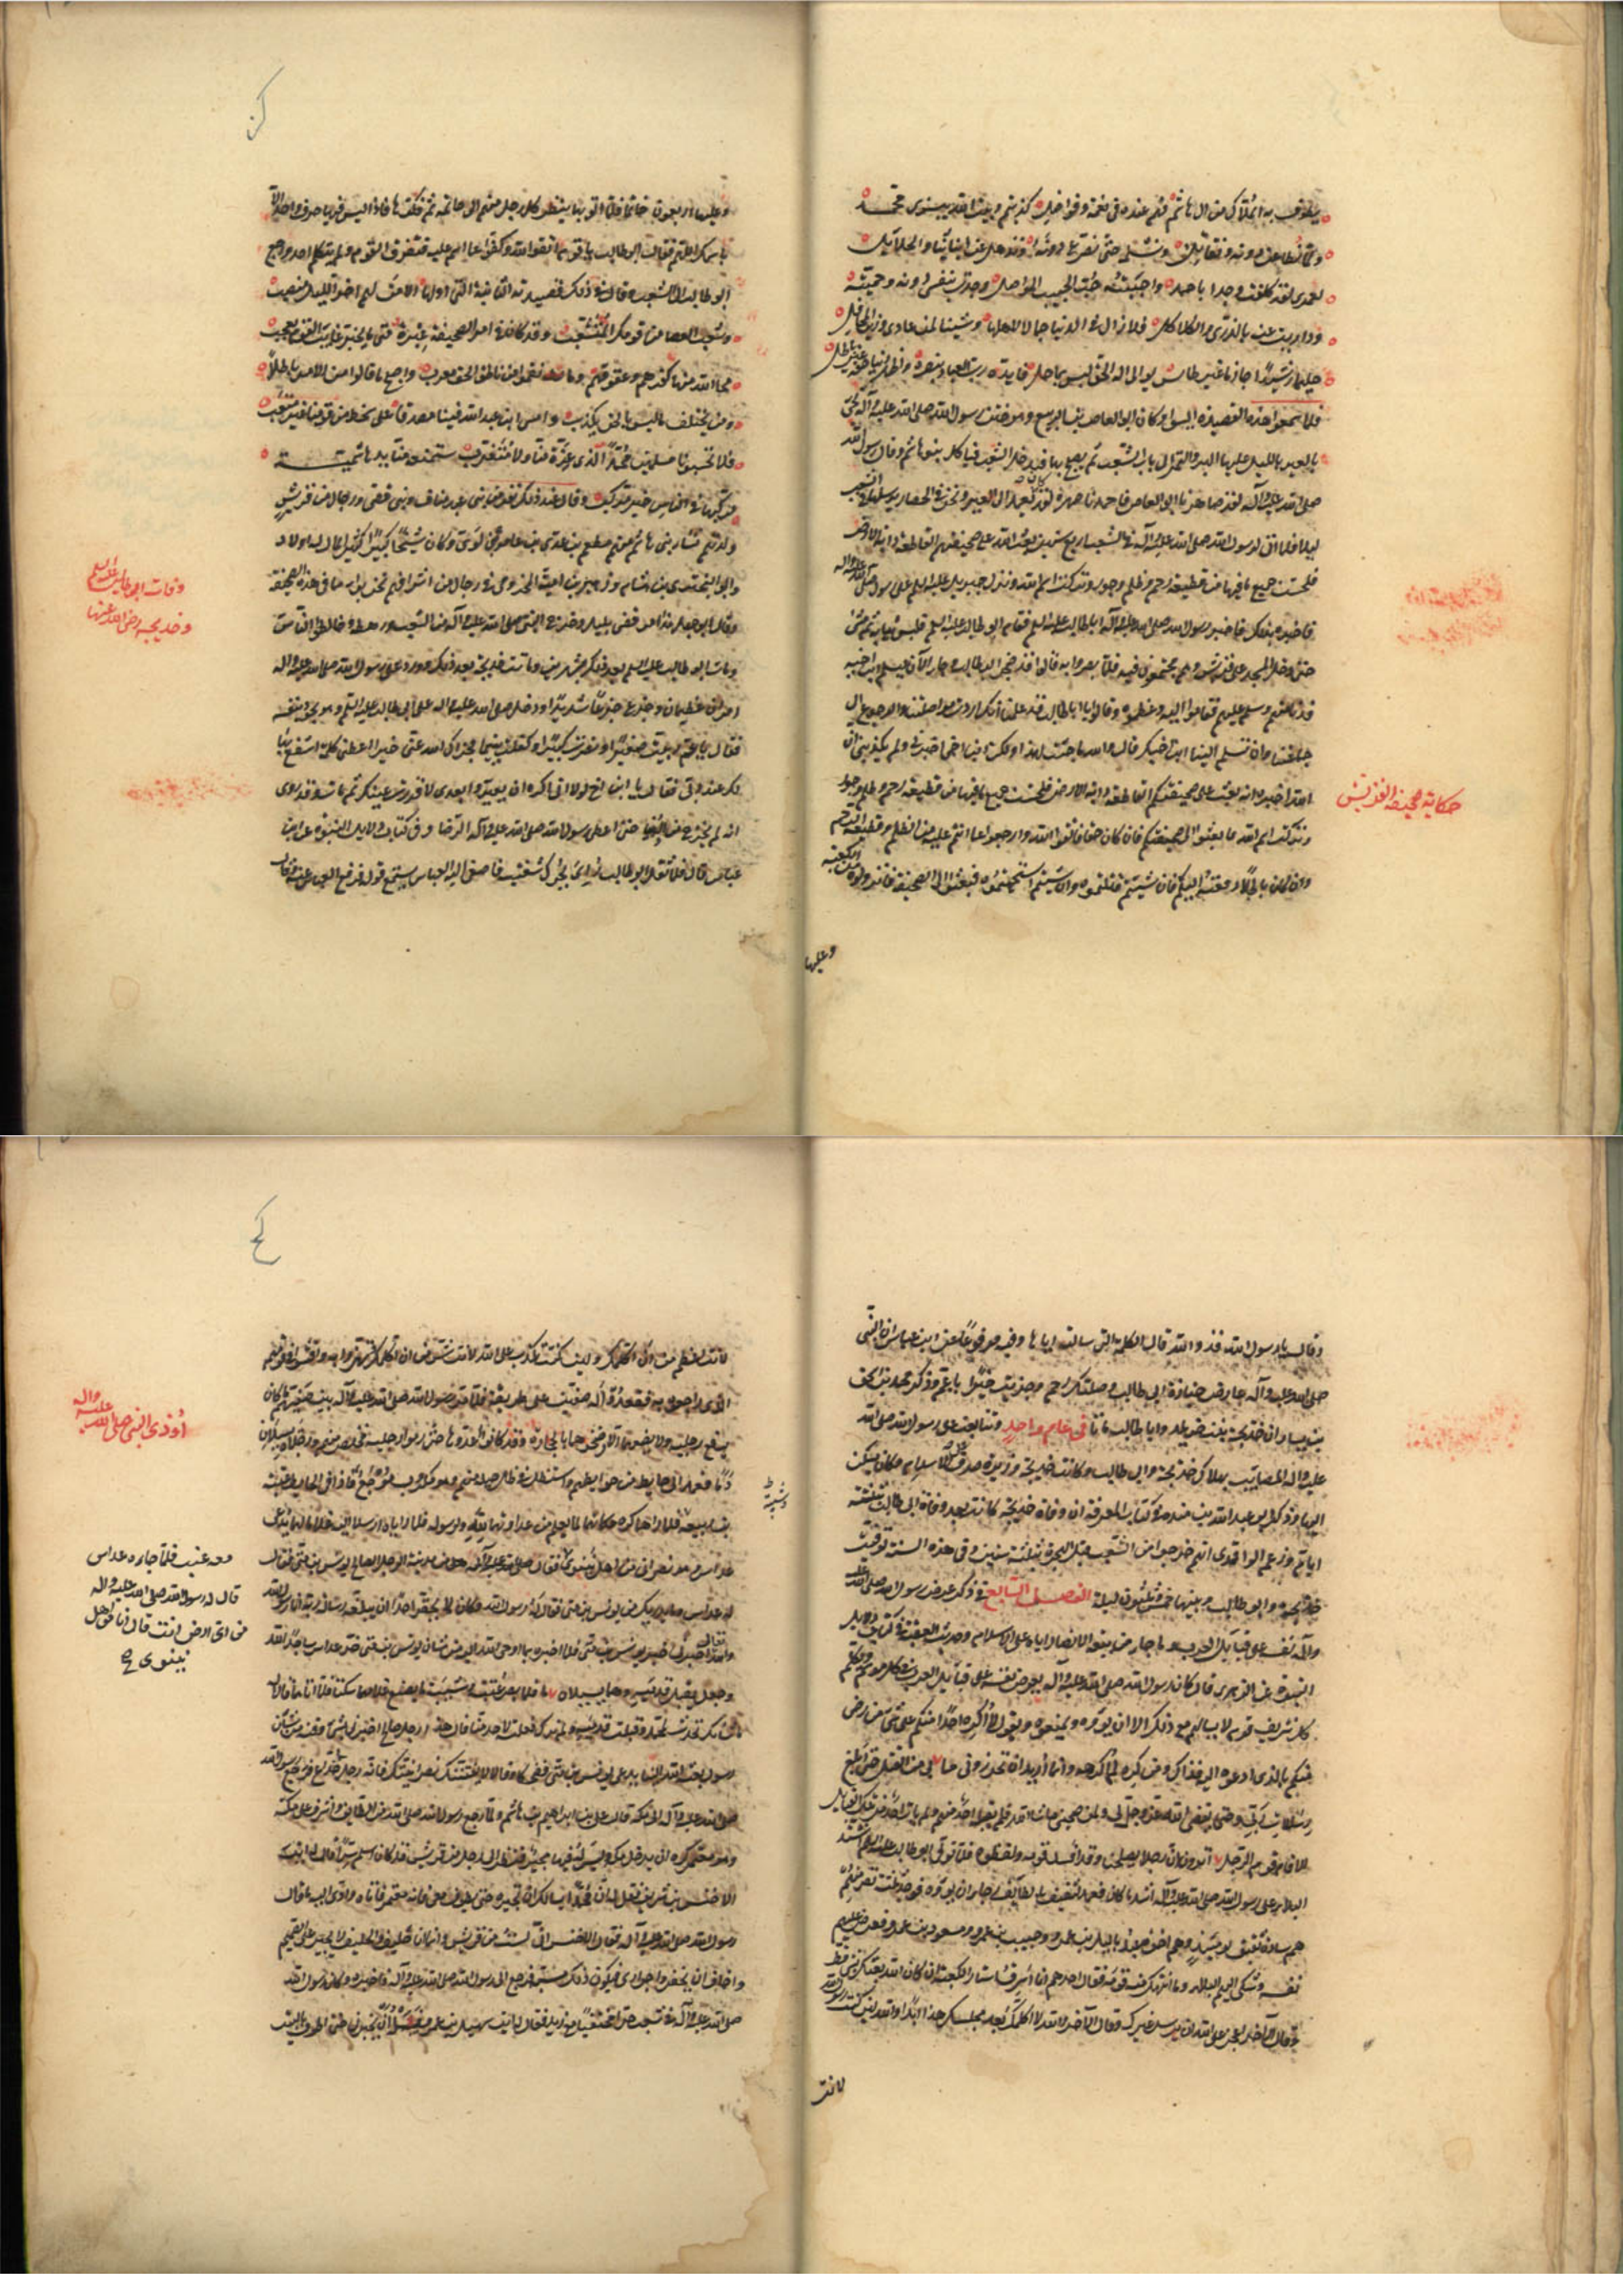 يطوف به الهلاك من آل هاشم فهم عنده في نعمة وفواضل كذبتم وبيت الله يبزى محمد
ولما نطاعن دونه ونقاتل ونسلمه حتى نصرع دونه ونذهل عن ابنائنا والحلائل
لعمري لقد كلفت وجدا باحمد واحببته حب الحبيب المواصل وجدت بنفسي دونه وحميته
ودارأت عنه بالذرى والكلاكل فلا زال في الدنيا جمالا لاهلها وشينا لمن عادى وزين المحافل
حليما رشيدا حازما غير طائش يوالي اله الحق ليس بماحل فايده رب العباد بنصره واظهر دينا حقه غير باطل
فلما سمعوا هذه القصيدة ايسوا وكان ابو العاص بن الربيع وهو ختن رسول الله صلى الله عليه وآله يجئ
بالعير بالليل عليها البر والتمر الى باب الشعب ثم يصيح بها فيدخل الشعب فياكله بنو هاشم وقال رسول الله
صلى الله عليه وآله لقد صاهرنا ابو العاص فاحمدنا صهره لقد كان يعمد الى العير ونحن في الحصار فيرسلها في الشعب
ليلا فلما اتى لرسول الله صلى الله عليه وآله في الشعب اربع سنين بعث الله على صحيفتهم القاطعة دابة الارض
فلحست جميع ما فيها من قطيعة رحم وظلم وجور وتركت اسم الله ونزل جبريل عليه السلم على رسول الله صلى الله عليه وآله
فاخبره بذلك فاخبر رسول الله صلى الله عليه وآله ابا طالب عليه السلم فقام ابو طالب عليه السلم فلبس ثيابه ثم مشى
حتى دخل المسجد على قريش وهم مجتمعون فيه فلما بصروا به قالوا قد ضجر ابو طالب وجاء الآن ليسلم ابن اخيه
فدنا منهم وسلم عليهم فقاموا اليه وعظموه وقالوا يا ابا طالب قد علمنا انك اردت مواصلتنا والرجوع الى
جماعتنا وان تسلم الينا ابن اخيك قال والله ما جئت لهذا ولكن ابن اخي اخبرني ولم يكذبني ان
الله اخبره انه بعث على صحيفتكم القاطعة دابة الارض فلحست جميع ما فيها من قطيعة رحم وظلم وجور
وتركت اسم الله فابعثوا الى صحيفتكم فان كان حقا فاتقوا الله وارجعوا عما انتم عليه من الظلم وقطيعة الرحم
وان كان باطلا دفعته اليكم فان شئتم قتلتموه وان شئتم استحييتموه فبعثوا الى الصحيفة فانزلوها من الكعبة
وعليها
حكاية صحيفة القريش
وعليها اربعون خاتما فلما اتوا بها نظر كل رجل منهم الى خاتمه ثم فكوها فاذا ليس فيها حرف واحد الا
باسمك اللهم فقال ابو طالب يا قوم اتقوا الله وكفوا عما انتم عليه فتفرق القوم ولم يتكلم احد ورجع
ابو طالب الى الشعب وقال في ذلك قصيدته البائية التي اولها الا من لهم آخر الليل منصب
وشعب العصا من قومك المتشعب وقد كان في امر الصحيفة عبرة متى ما يخبر غائب القوم يعجب
محا الله منها كفرهم وعقوقهم وما نقموا من ناطق الحق معرب واصبح ما قالوا من الامر باطلا
ومن يختلق ما ليس بالحق يكذب وامسى ابن عبد الله فينا مصدقا على سخط من قومنا غير معتب
فلا تحسبونا مسلمين محمدا لذي عزة منا ولا متغرب ستمنعه منا يد هاشمية
مركبها في الناس خير مركب وقال عند ذلك نفر من بني عبد مناف وبني قصي ورجال من قريش
ولدتهم نساء بني هاشم منهم مطعم بن عدي بن عامر بن لؤي وكان شيخا كبيرا كثير المال له اولاد
وابو البختري بن هشام وزهير بن امية المخزومي في رجال من اشرافهم نحن برآء مما في هذه الصحيفة
وقال ابو جهل هذا امر قضي بليل وخرج النبي صلى الله عليه وآله من الشعب ورهطه وخالطوا الناس
ومات ابو طالب عليه السلم بعد ذلك بشهرين وماتت خديجة بعد ذلك وورد على رسول الله صلى الله عليه وآله
امران عظيمان وجزع جزعا شديدا ودخل صلى الله عليه وآله على ابي طالب عليه السلم وهو يجود بنفسه
فقال يا عم ربيت صغيرا ونصرت كبيرا وكفلت يتيما فجزاك الله عني خيرا اعطني كلمة اشفع بها
لك عند ربي فقال يا ابن اخ لولا اني اكره ان يعيروا بعدي لاقررت عينك ثم مات وقد روى
انه لم يخرج من الدنيا حتى اعطى رسول الله صلى الله عليه وآله الرضا وفي كتاب دلائل النبوة عن ابن
عباس قال فلما ثقل ابو طالب رئي يحرك شفتيه فاصغى اليه العباس يستمع قوله فرفع العباس عنه وقال
وفات ابو طالب عليه السلم
وخديجة رضي الله عنها
وقال يا رسول الله قد والله قال الكلمة التي سالته اياها وفيه مرفوعا عن ابن عباس ان النبي
صلى الله عليه وآله عارض جنازة ابي طالب فقال وصلتك رحم وجزيت خيرا يا عم وذكر محمد بن اسحق
بن يسار ان خديجة بنت خويلد وابا طالب ماتا في عام واحد وتتابعت على رسول الله صلى الله
عليه وآله المصائب بهلاك خديجة وابي طالب وكانت خديجة وزيرة صدق على الاسلام وكان يسكن
اليها وذكر ابو عبد الله بن منده في كتاب المعرفة ان وفاة خديجة كانت بعد وفاة ابي طالب بثلثة
ايام وزعم الواقدي انهم خرجوا من الشعب قبل الهجرة بثلث سنين وفي هذه السنة توفيت
خديجة وابو طالب وبينهما خمس وثلثون ليلة الفصل السابع في ذكر عرض رسول الله صلى الله عليه
وآله نفسه على قبائل العرب وما جاء من بيعة الانصار اياه على الاسلام وحديث العقبة في كتاب دلائل
النبوة عن الزهري قال كان رسول الله صلى الله عليه وآله يعرض نفسه على قبائل العرب في كل موسم ويكلم
كل شريف قوم لا يسالهم مع ذلك الا ان يؤوه ويمنعوه ويقول لا اكره احدا منكم على شئ من رضي
منكم بالذي ادعوه اليه فذاك ومن كره لم اكرهه وانما اريد ان تحرزوني مما يراد بي من القتل حتى ابلغ
رسالات ربي وحتى يقضي الله عز وجل لي ولمن صحبني ما شاء الله فلم يقبله احد منهم ولم يات احدا من تلك القبائل
الا قال قوم الرجل اعلم به اترون ان رجلا يصلحنا وقد افسد قومه ولفظوه فلما توفي ابو طالب عليه السلم اشتد
البلاء على رسول الله صلى الله عليه وآله اشد ما كان فعمد لثقيف بالطائف رجاء ان يؤووه فوجد ثلثة نفر منهم
هم سادة ثقيف يومئذ وهم اخوة عبد ياليل بن عمرو وحبيب بن عمرو ومسعود بن عمرو فعرض عليهم
نفسه وشكى اليهم البلاء وما انتهك منه قومه فقال احدهم انا اسرق استار الكعبة ان كان الله بعثك بشئ قط
وقال الآخر اعجز على الله ان يرسل غيرك وقال الآخر والله لا اكلمك بعد مجلسك هذا ابدا والله لئن كنت رسول الله
لانت
لانت اعظم من ان اكلمك ولئن كنت تكذب على الله لانت شر من ان اكلمك وتهزؤا به وافشوا في قومهم
الذي راجعوه به فقعدوا له صفين على طريقه فلما مر رسول الله صلى الله عليه وآله بين صفيهم كان لا
يرفع رجليه ولا يضعهما الا رضخوهما بالحجارة وقد كانوا اعدوها حتى ادموا رجليه فخلص منهم ورجلاه يسيلان
دما فعمد الى حائط من حوائطهم واستظل في ظل حبلة منهم وهو مكروب موجع فاذا في الحائط عتبة
بن ربيعة فلما راهما كره مكانهما لما يعلم من عداوتهما لله ولرسوله فلما راياه ارسلا اليه غلاما لهما يدعى
عداس وهو نصراني من اهل نينوى فقال صلى الله عليه وآله من مدينة الرجل الصالح يونس بن متى فقال
له عداس وما يدريك من يونس بن متى فقال له رسول الله وكان لا يحقر احدا ان يبلغه رسالة ربه انا رسول الله
والله تعالى اخبرني خبر يونس بن متى فلما اخبره بما اوحى الله اليه من شان يونس بن متى خر عداس ساجدا لله
وجعل يقبل قدميه وهما يسيلان دما فلما بصر عتبة وشيبة ما يصنع غلامهما سكتا فلما اتاهما قالا
ما شانك سجدت لمحمد وقبلت قدميه ولم نرك فعلت لاحد منا قال هذا رجل صالح اخبرني بشئ عرفته من شان
رسول بعثه الله الينا يدعى يونس بن متى فضحكا وقالا لا يفتننك عن نصرانيتك فانه رجل خداع فرجع رسول الله
صلى الله عليه وآله الى مكة قال علي بن ابراهيم بن هاشم ولما رجع رسول الله صلى الله من الطايف واشرف على مكة
وهو معتمر كره ان يدخل مكة وليس له فيها مجير فنظر الى رجل من قريش قد كان اسلم سرا فقال له ايت
الاخنس بن شريق فقل له ان محمدا يسالك ان تجيره حتى يطوف ويسعى فانه معتمر فاتاه وادى اليه ما قال
رسول الله صلى الله عليه وآله فقال الاخنس اني لست من قريش وانما انا حليف والحليف لا يجير على الصميم
واخاف ان يخفروا جواري فيكون ذلك مسبة فرجع الى رسول الله صلى الله عليه وآله واخبره وكان رسول الله
صلى الله عليه وآله في شعب حرا مختفيا مع زيد فقال له ايت سهيل بن عمرو فسله ان يجيرني حتى اطوف بالبيت
وشيبة
اوذي النبي صلى الله عليه وآله
معه عنب فلما جاءه عداس
قال له رسول الله صلى الله عليه وآله
من اي ارض انت قال انا من اهل
نينوى